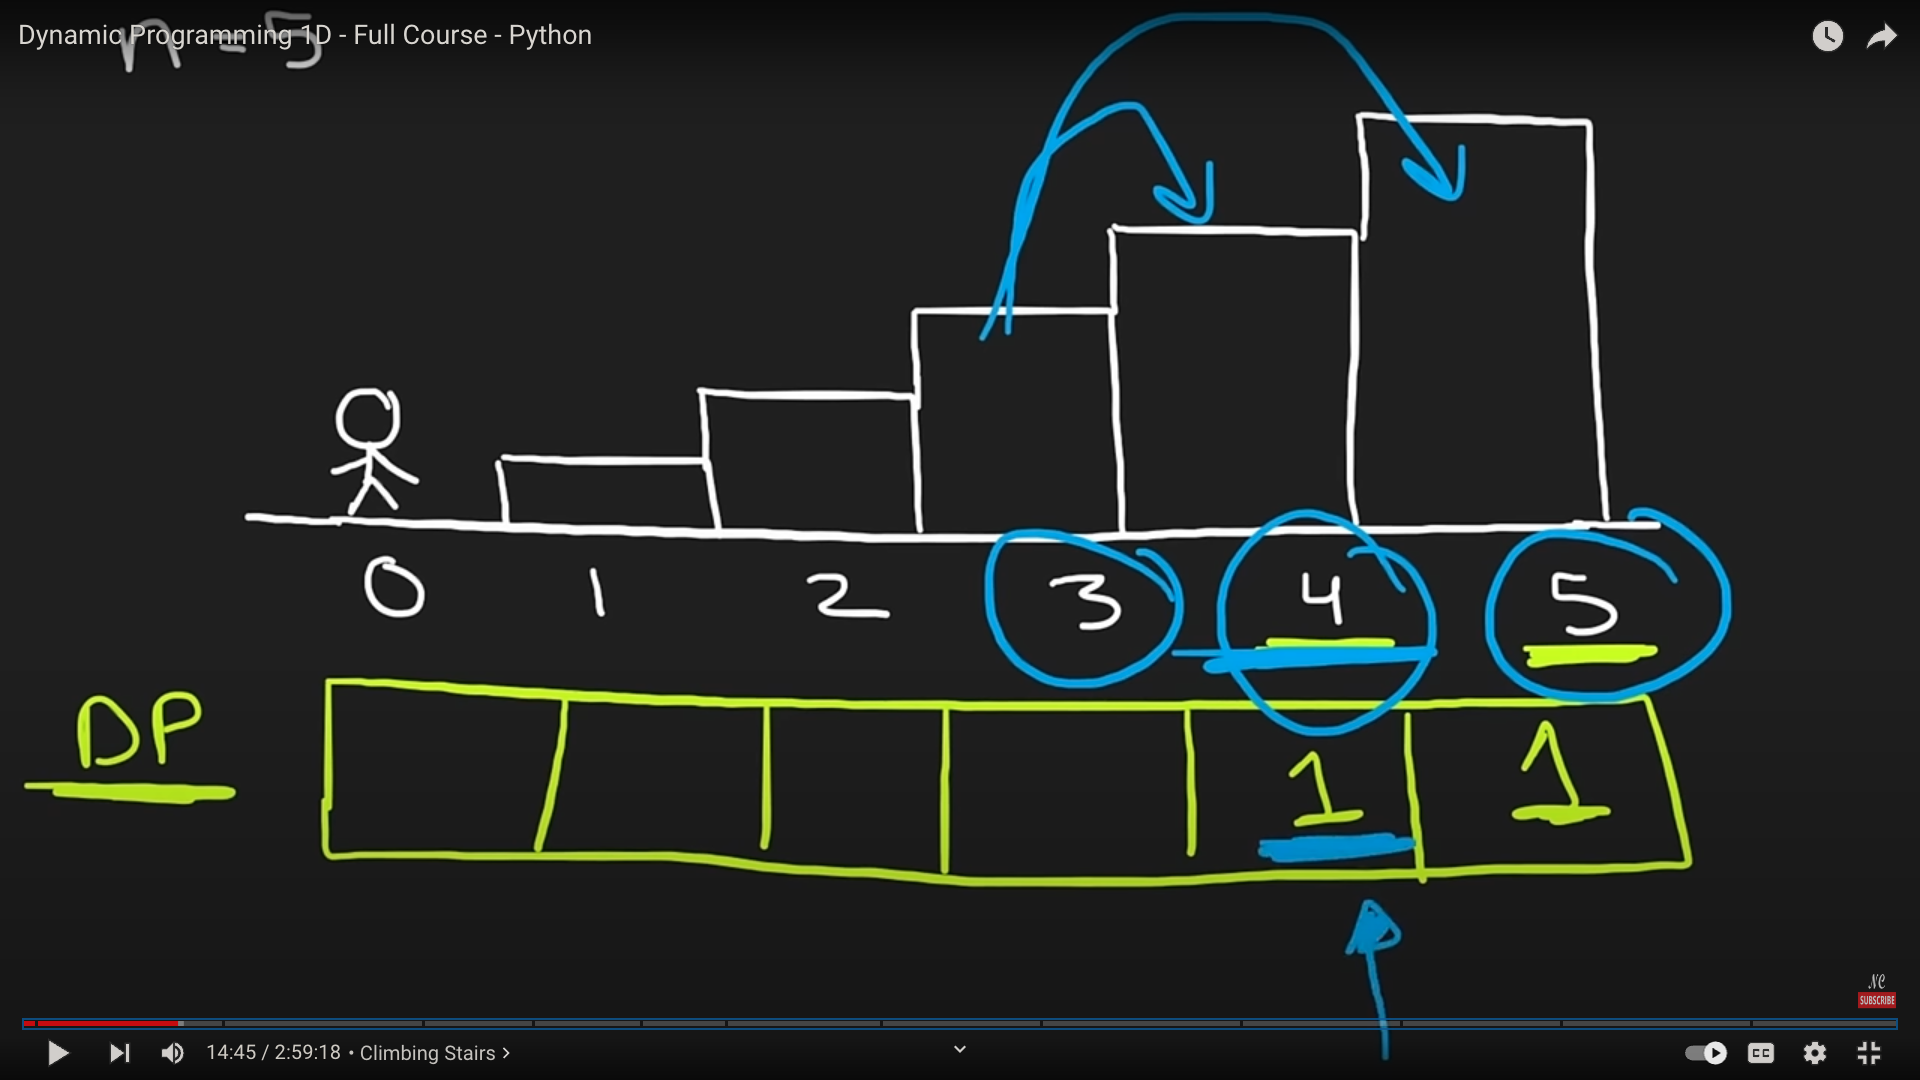 Dynamic Programming 1D - Full Course - Python
n = 5
0 1 2 3 4 5
DP
1 1
NC
SUBSCRIBE
14:45 / 2:59:18 • Climbing Stairs >
CC